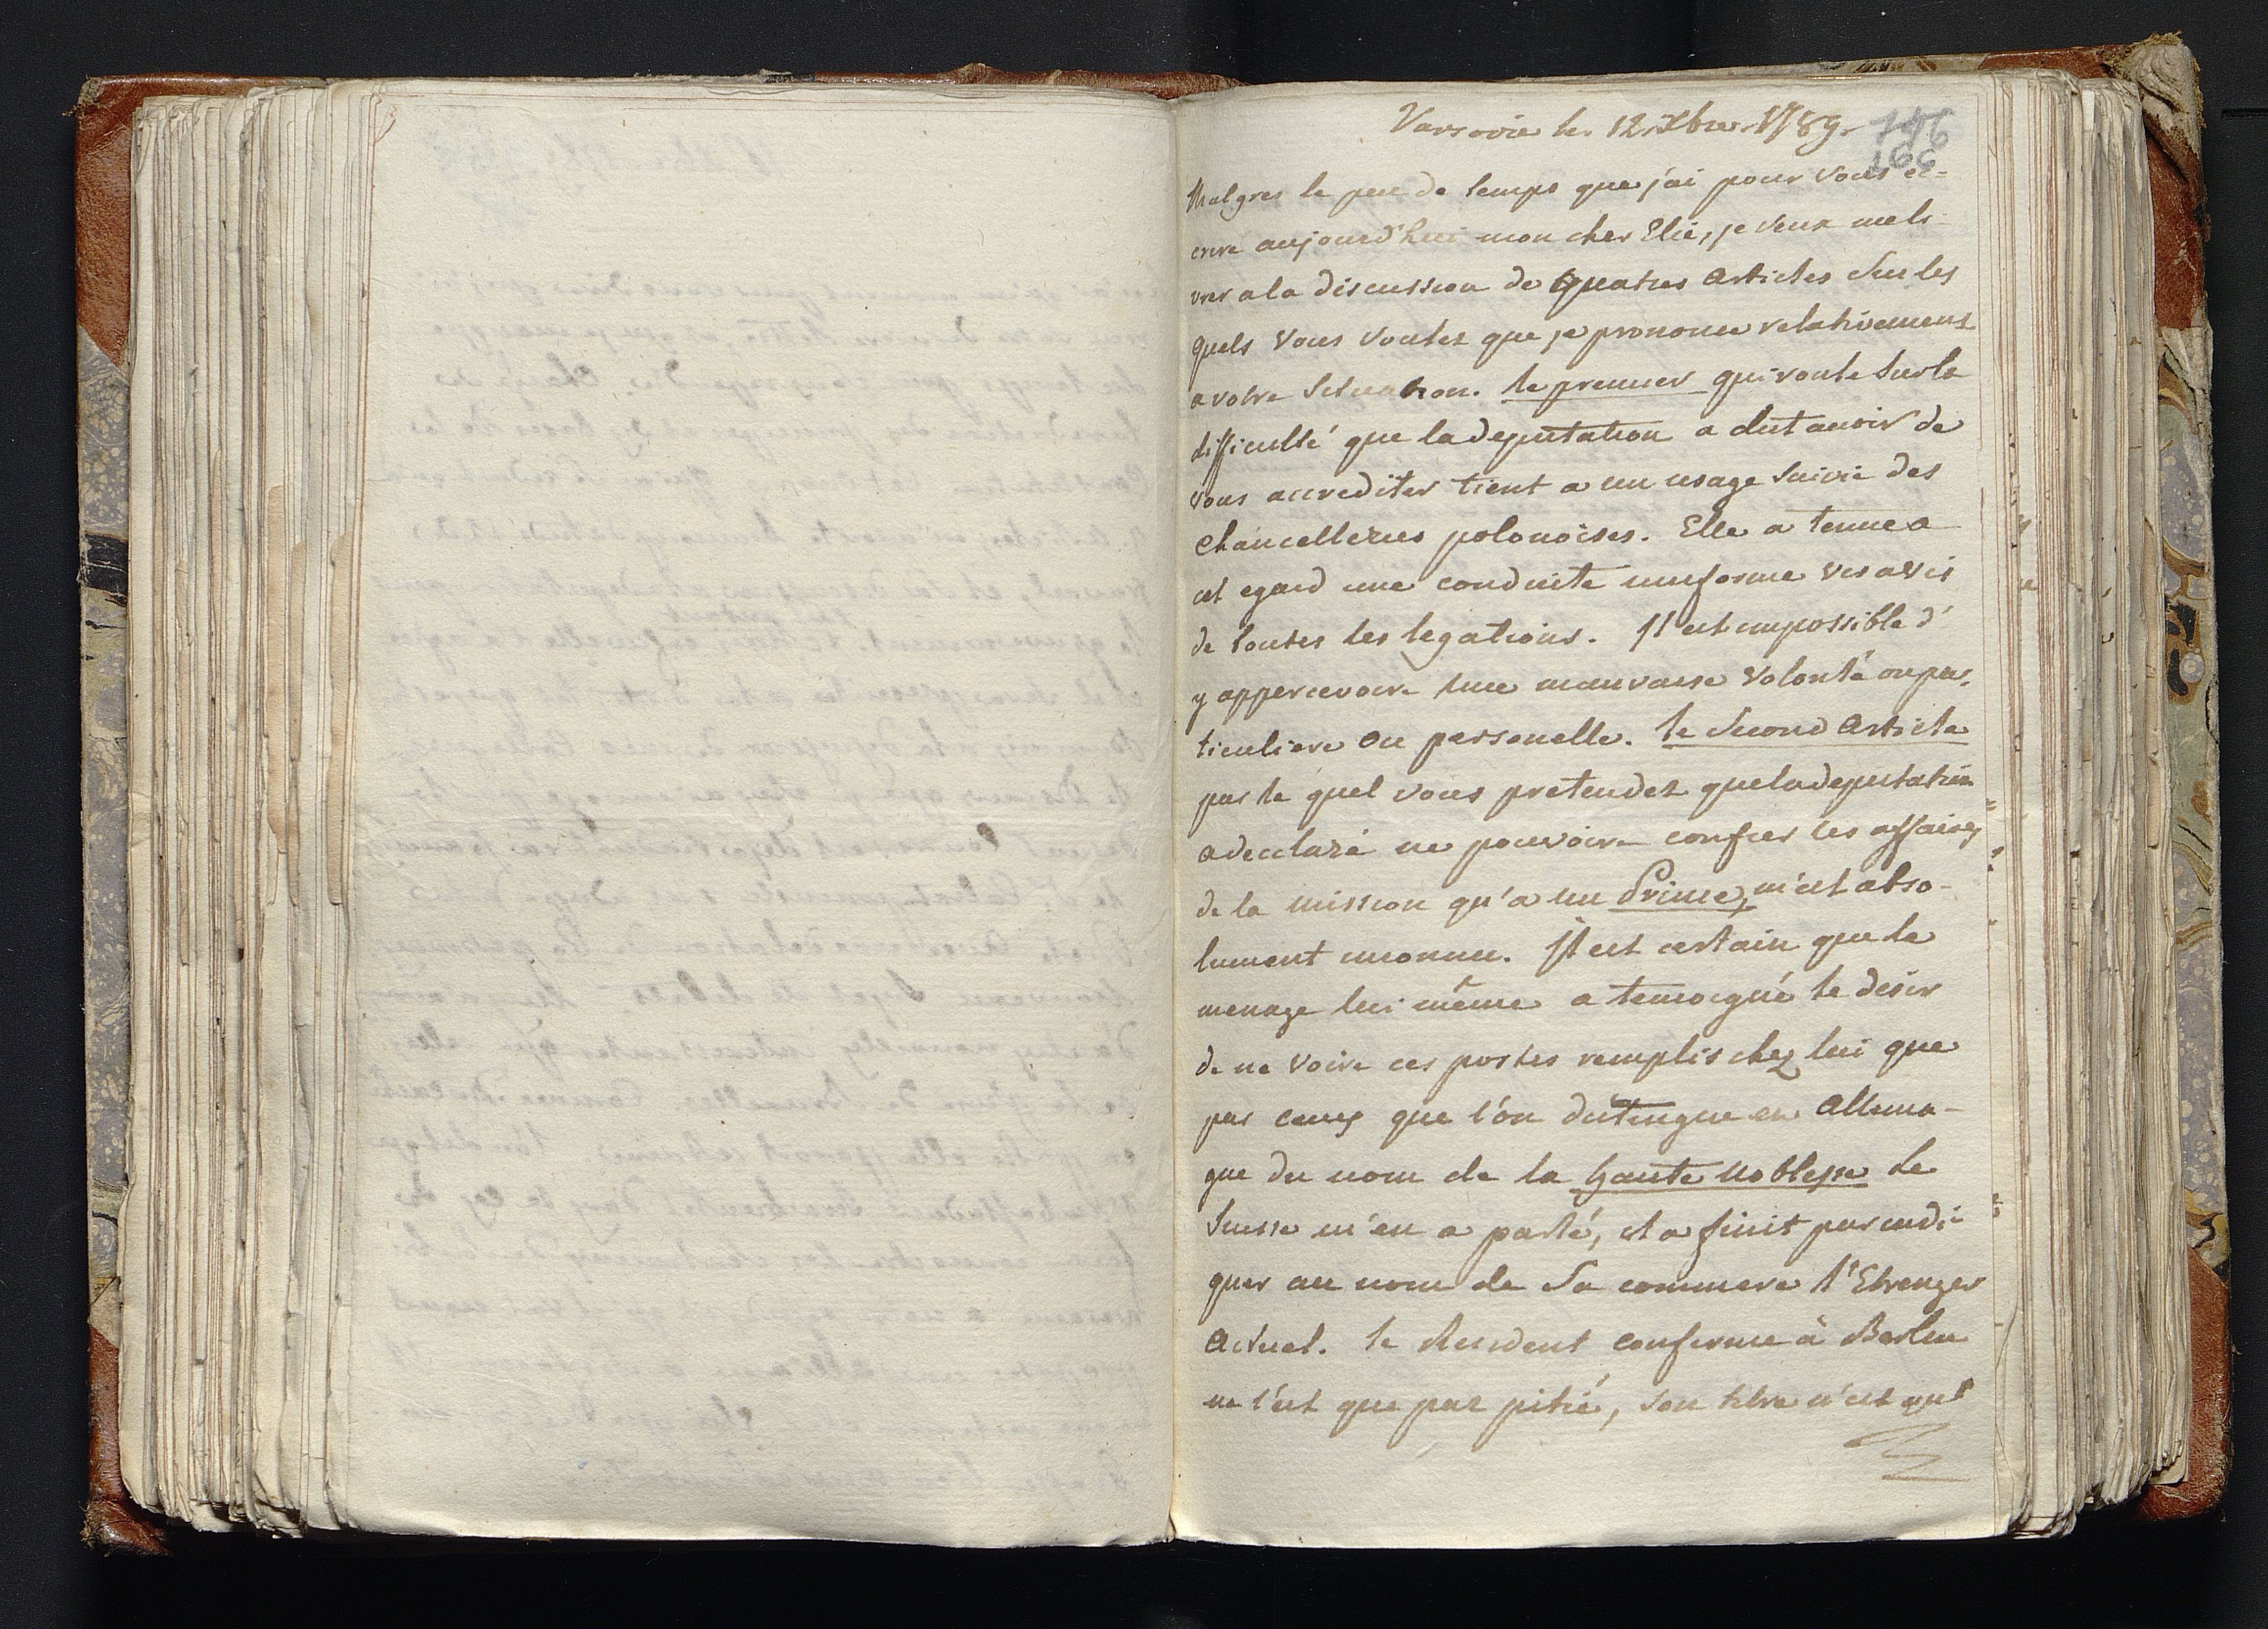 Varsovie le. 12. Xbre. 1789.
746
166
Malgres le peu de temps que j'ai pour vous ec-
crire aujourd'hui mon cher Elie, je veux me li-
vrer a la discussion de quatres articles sur les
quels vous voulez que je prononce relativement
a votre situation. le premier qui roule sur la
difficulté que la deputation a dut avoir de
vous accrediter tient a un usage suivie des
chancelleries polonoises. Elle a tenue a
cet egard une conduite uniforme vis a vis
de toutes les legations. Il est impossible d'
y appercevoire une mauvaise volonté ou par-
ticuliere ou personelle. le second article
par le quel vous pretendez que la deputation
a declaré ne pouvoire confier les affaires
de la mission qu'a un Prince, m'est abso-
lument inconnu. Il est certain que le
menage lui même a temoigné le desir
de ne voire ces postes remplis chez lui que
par ceux que l'on distingue en Allema-
gne du nom de la haute noblesse le
Suisse m'en a parlé, et a finit par indi-
quer au nom de sa commere l'Etranger
actuel. le Resident confirmé à Berlin
ne l'est que par pitié, son titre n'est qu'